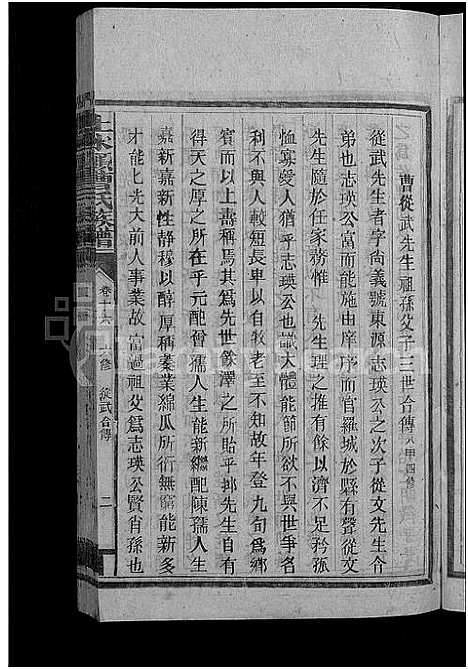 曹從武先生祖孫父子三世合傳 八甲四修
從武先生者字尚義號東源志瑛公之次子從文先生合
弟也志瑛公富而能施由庠序而官羅城於縣有聲從文
先生隨於任家務惟 先生理之推有餘以濟不足矜孤
恤寡愛人猶乎志瑛公也識大體能節所欲不與世爭名
利不與人較短長卑以自牧老至不知故年登九旬爲鄉
賓而以上壽稱焉其爲先世餘澤之所貽乎抑先生自有
得天之厚之所在乎元配曾孺人生能新繼配陳孺人生
嘉新嘉新性靜穆以醇厚稱蓁業綿瓜所衍無窮能新多
才能七光大前人事業故富過祖父爲志瑛公賢肖孫也
氏族譜
卷十六
修
從武合傳
二